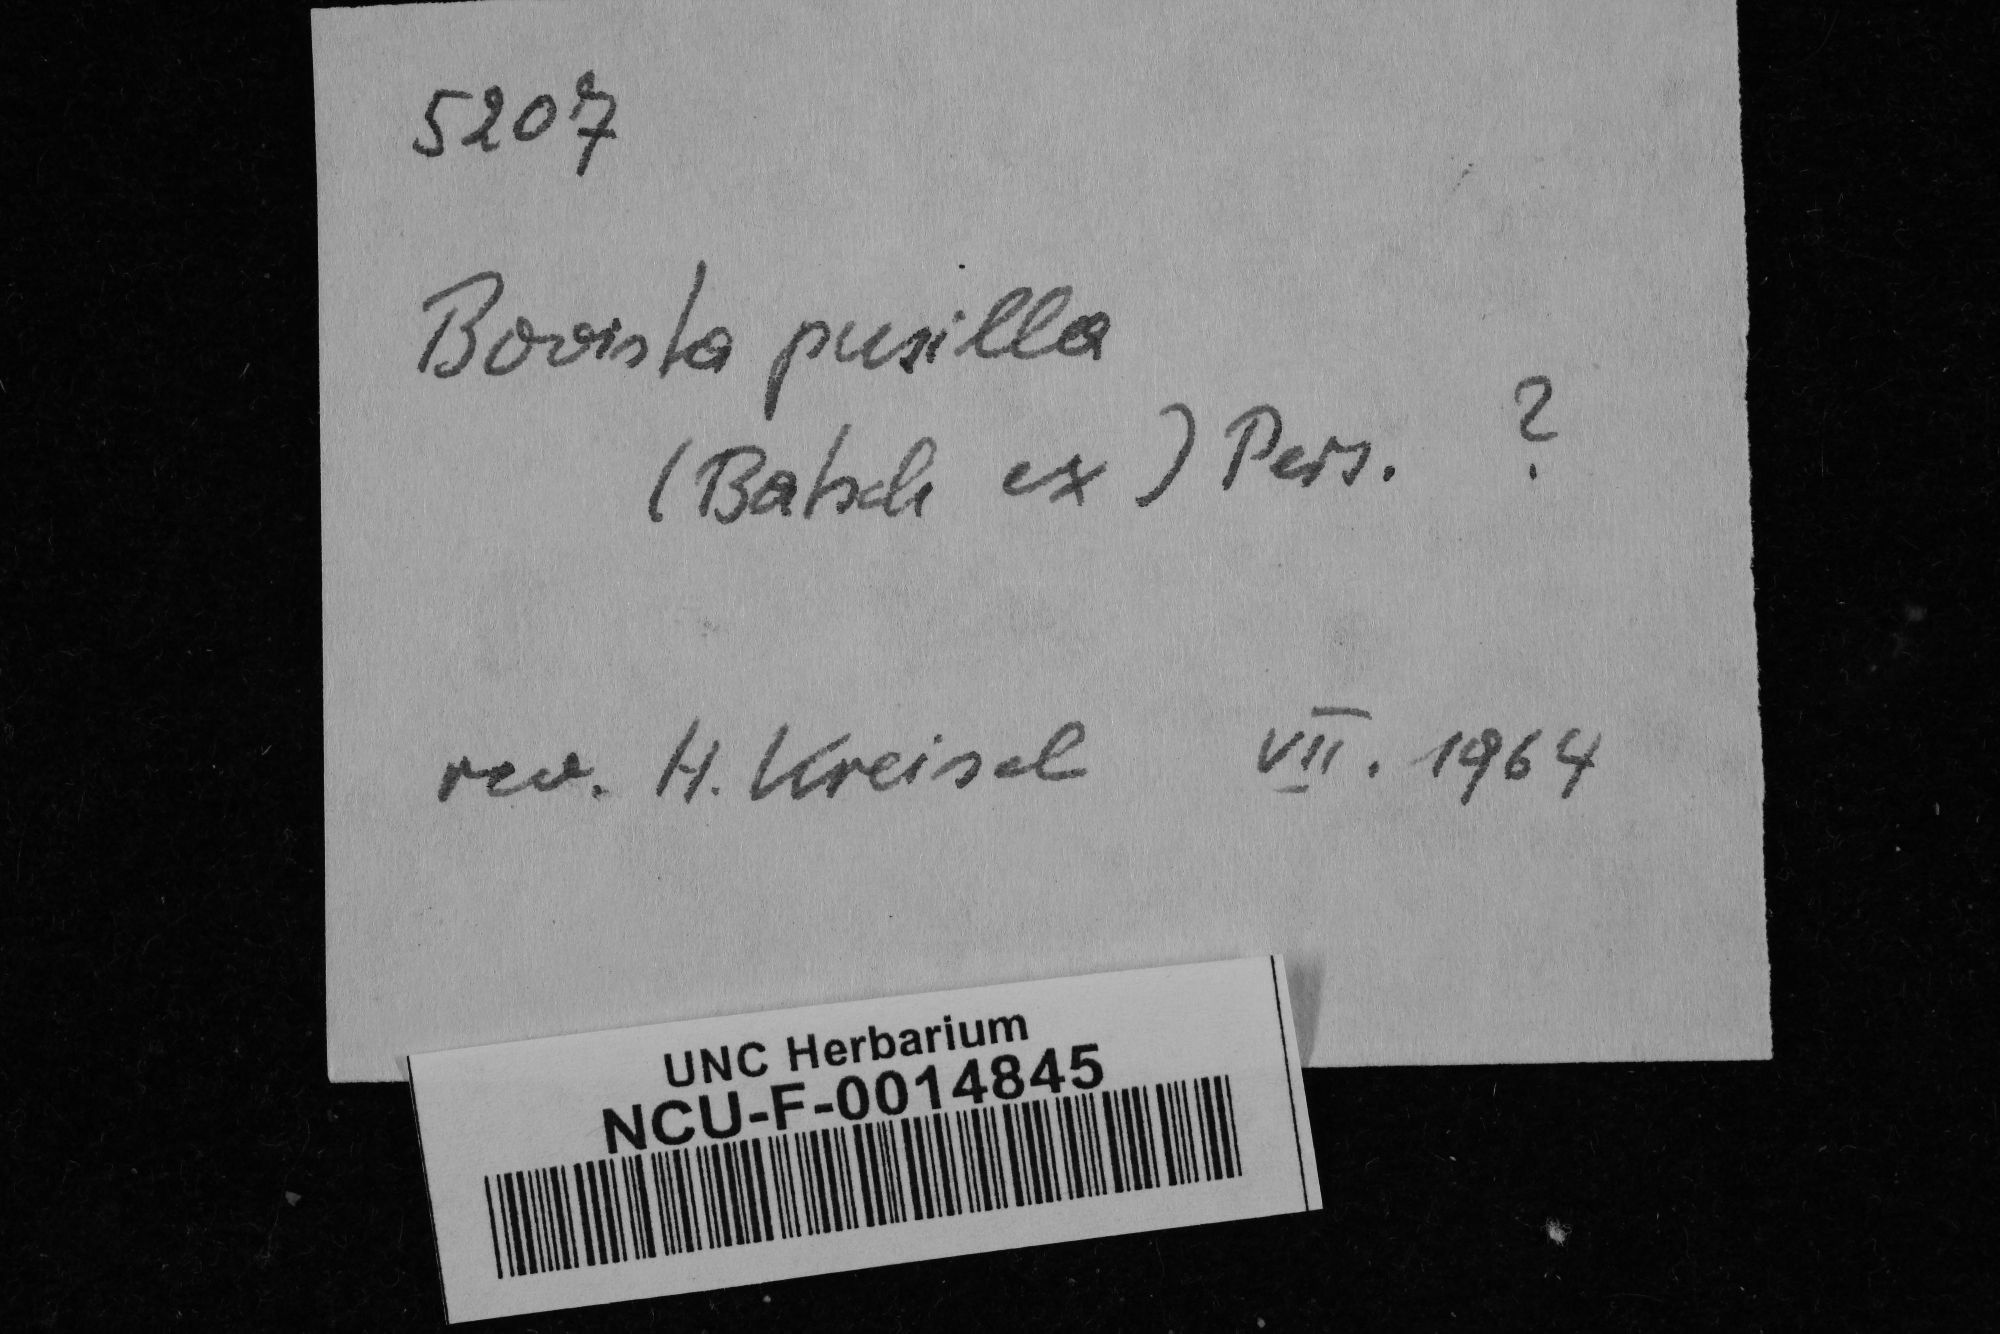 5207
Bovista pusilla
(Batsch ex) Pers. ?
rev. H. Kreisel VII. 1964
UNC Herbarium
NCU-F-0014845